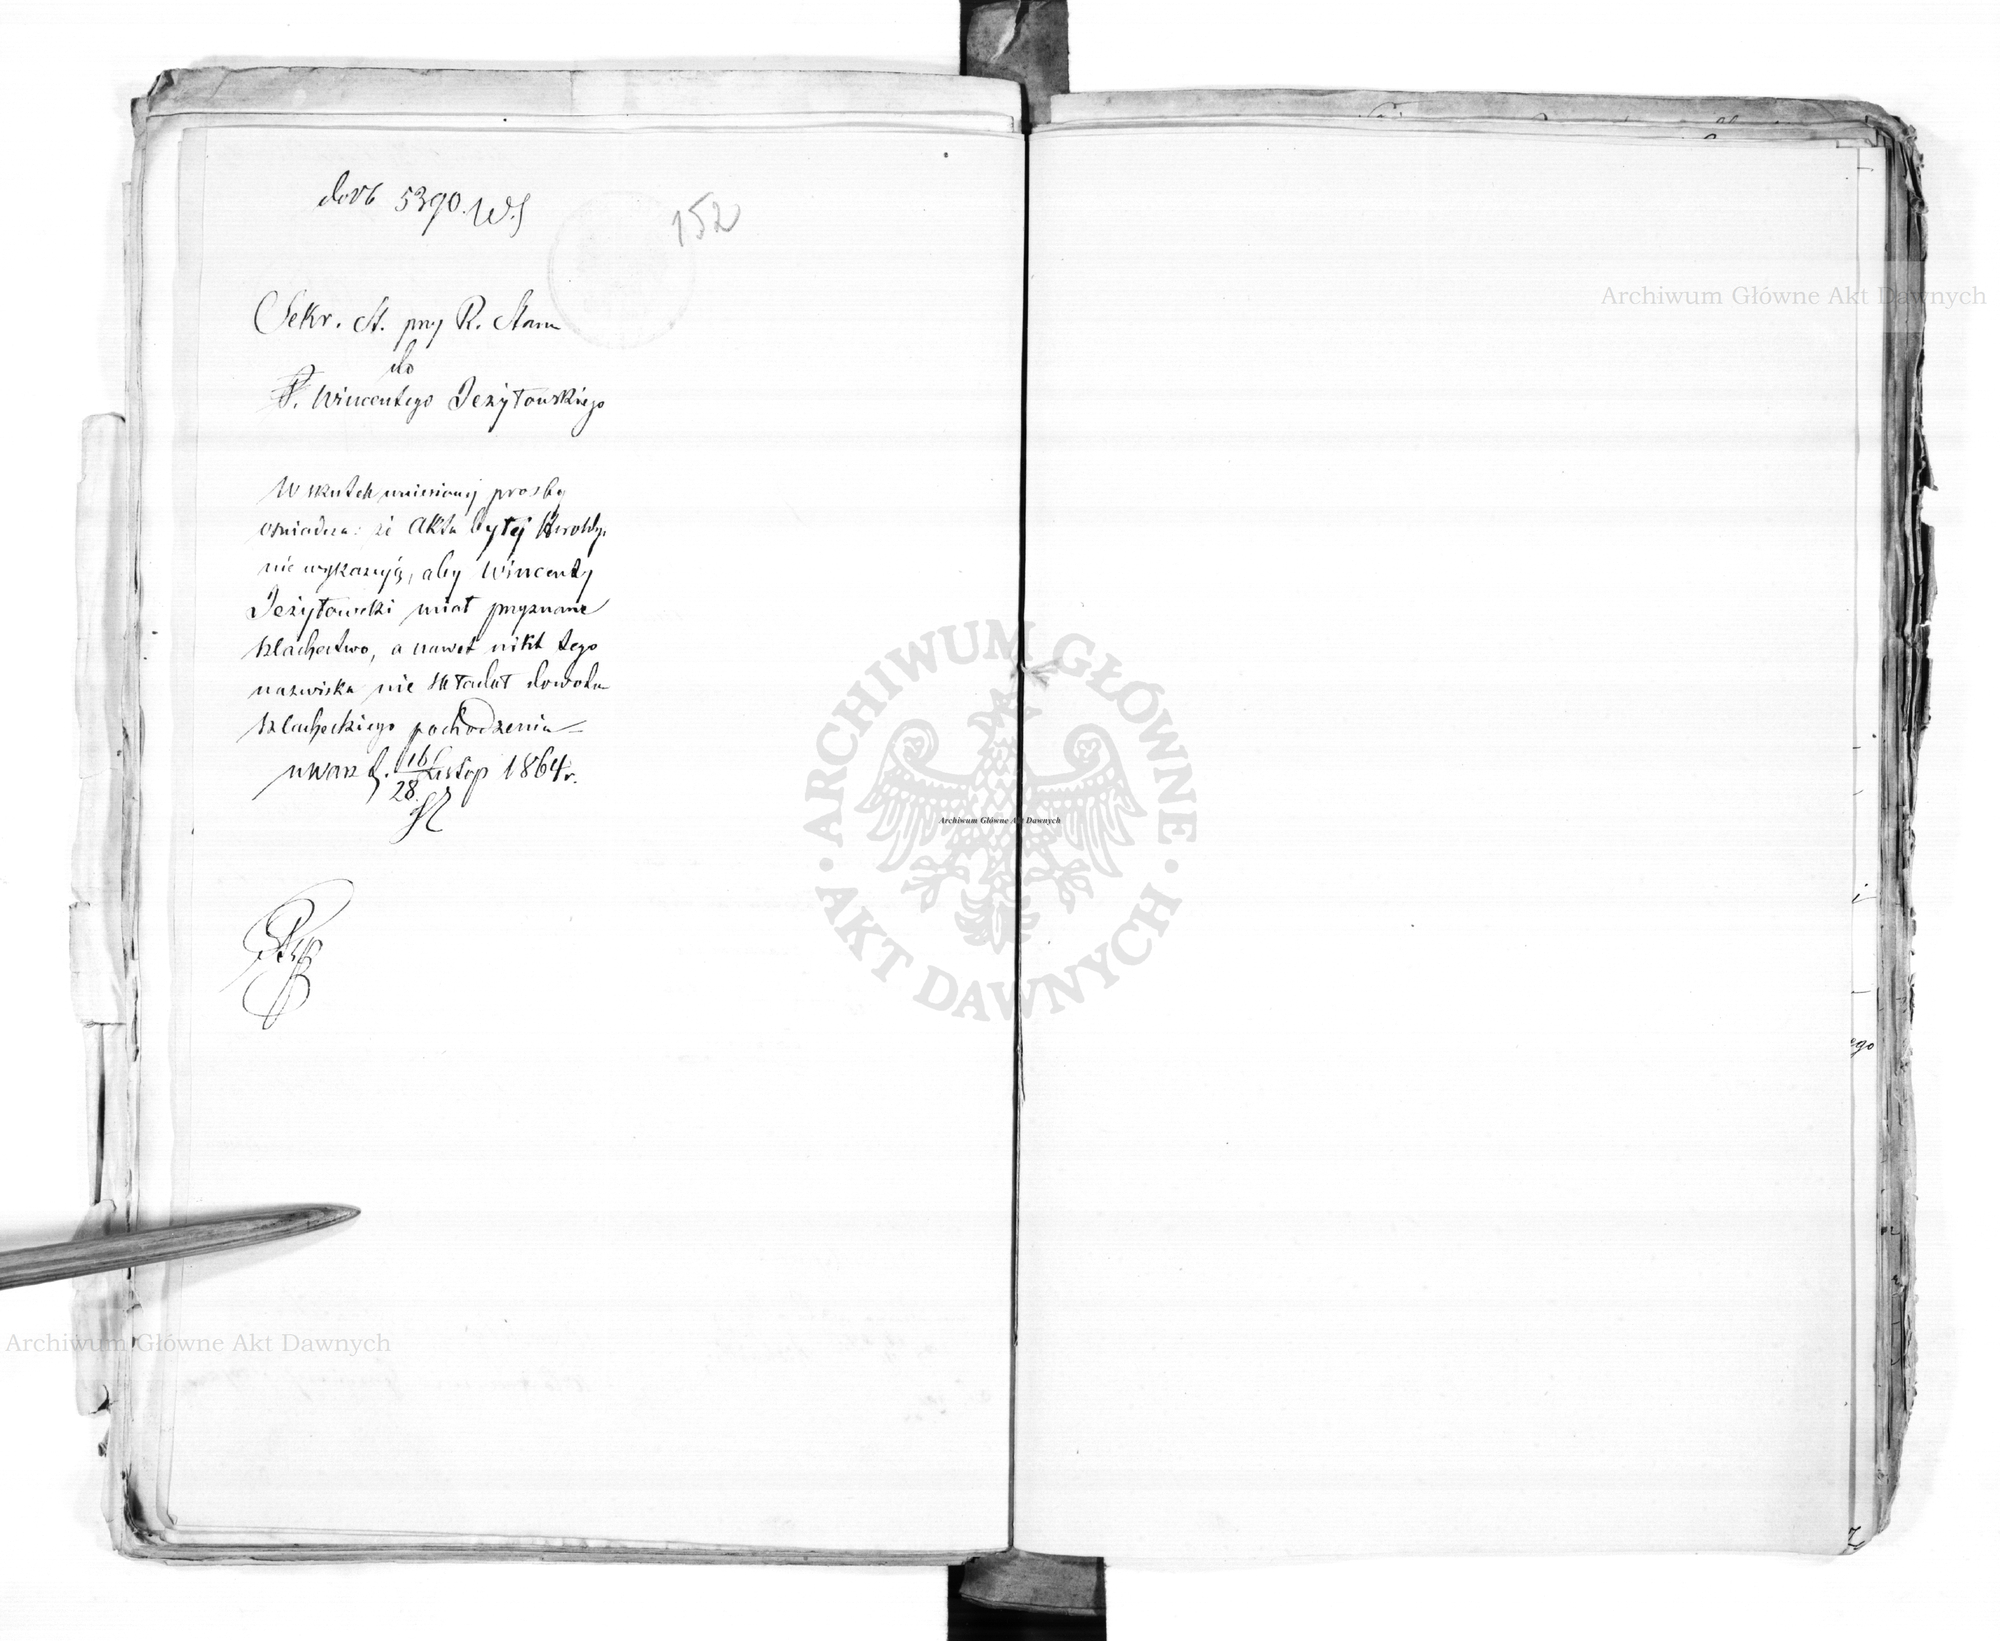 do № 5390. W.S
152
Sekr. St. przy R. Stanu
do
P. Wincentego Jeżyławskiego
W skutek wniesionej prośby
oświadcza: że Akta byłej Heroldyi
nie wykazują, aby Wincenty
Jeżyławski miał przyznane
szlachectwo, a nawet nikt tego
nazwiska nie składał dowodu
szlacheckiego pochodzenia
w Warsz d. 16/28 Listop 1864 r.
Archiwum Główne Akt Dawnych
ARCHIWUM GŁÓWNE
AKT DAWNYCH
Archiwum Główne Akt Dawnych
ego
Archiwum Główne Akt Dawnych